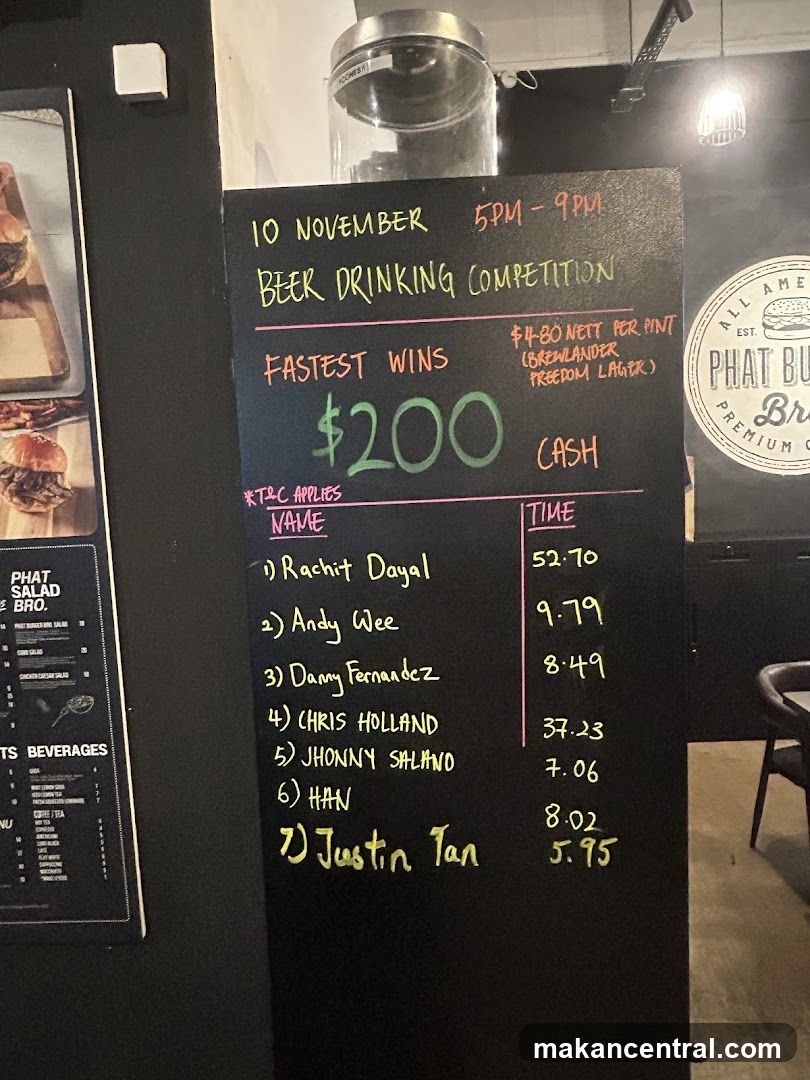 10 NOVEMBER 5PM - 9PM
BEER DRINKING COMPETITION
FASTEST WINS
$4.80 NETT PER PINT
(BREWLANDER
FREEDOM LAGER)
$200 CASH
*T&C APPLIES
NAME TIME
1) Rachit Dayal 52.70
2) Andy Wee 9.79
3) Danny Fernandez 8.49
4) CHRIS HOLLAND 37.23
5) JHONNY SALAND 7.06
6) HAN 8.02
7) Justin Tan 5.95
ALL AME
EST.
PHAT BU
Br
PREMIUM
PHAT
SALAD
BRO.
PHAT BURGER BRO. SALAD
COBB SALAD
CHICKEN CAESAR SALAD
TS BEVERAGES
SODA
MINT LEMON SODA
ICED LEMON TEA
FRESH SQUEEZED LEMONADE
COFFEE / TEA
HOT TEA
ESPRESSO
LATTE
FLAT WHITE
CAPPUCCINO
MACCHIATO
NU
makancentral.com